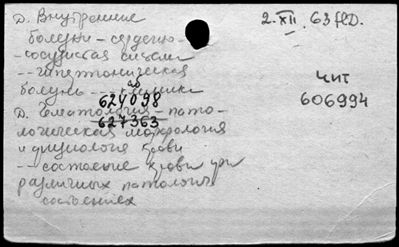 Д. Внутренние
болезни - сердечно-
- сосудистая система
-- гипертоническая
болезнь --- клиника
624098
Д. Гематология - пато-
627363
логическая морфология
и физиология крови
--- состояние крови при
различных патологич
состояниях
2. XII. 63
Чит
606994